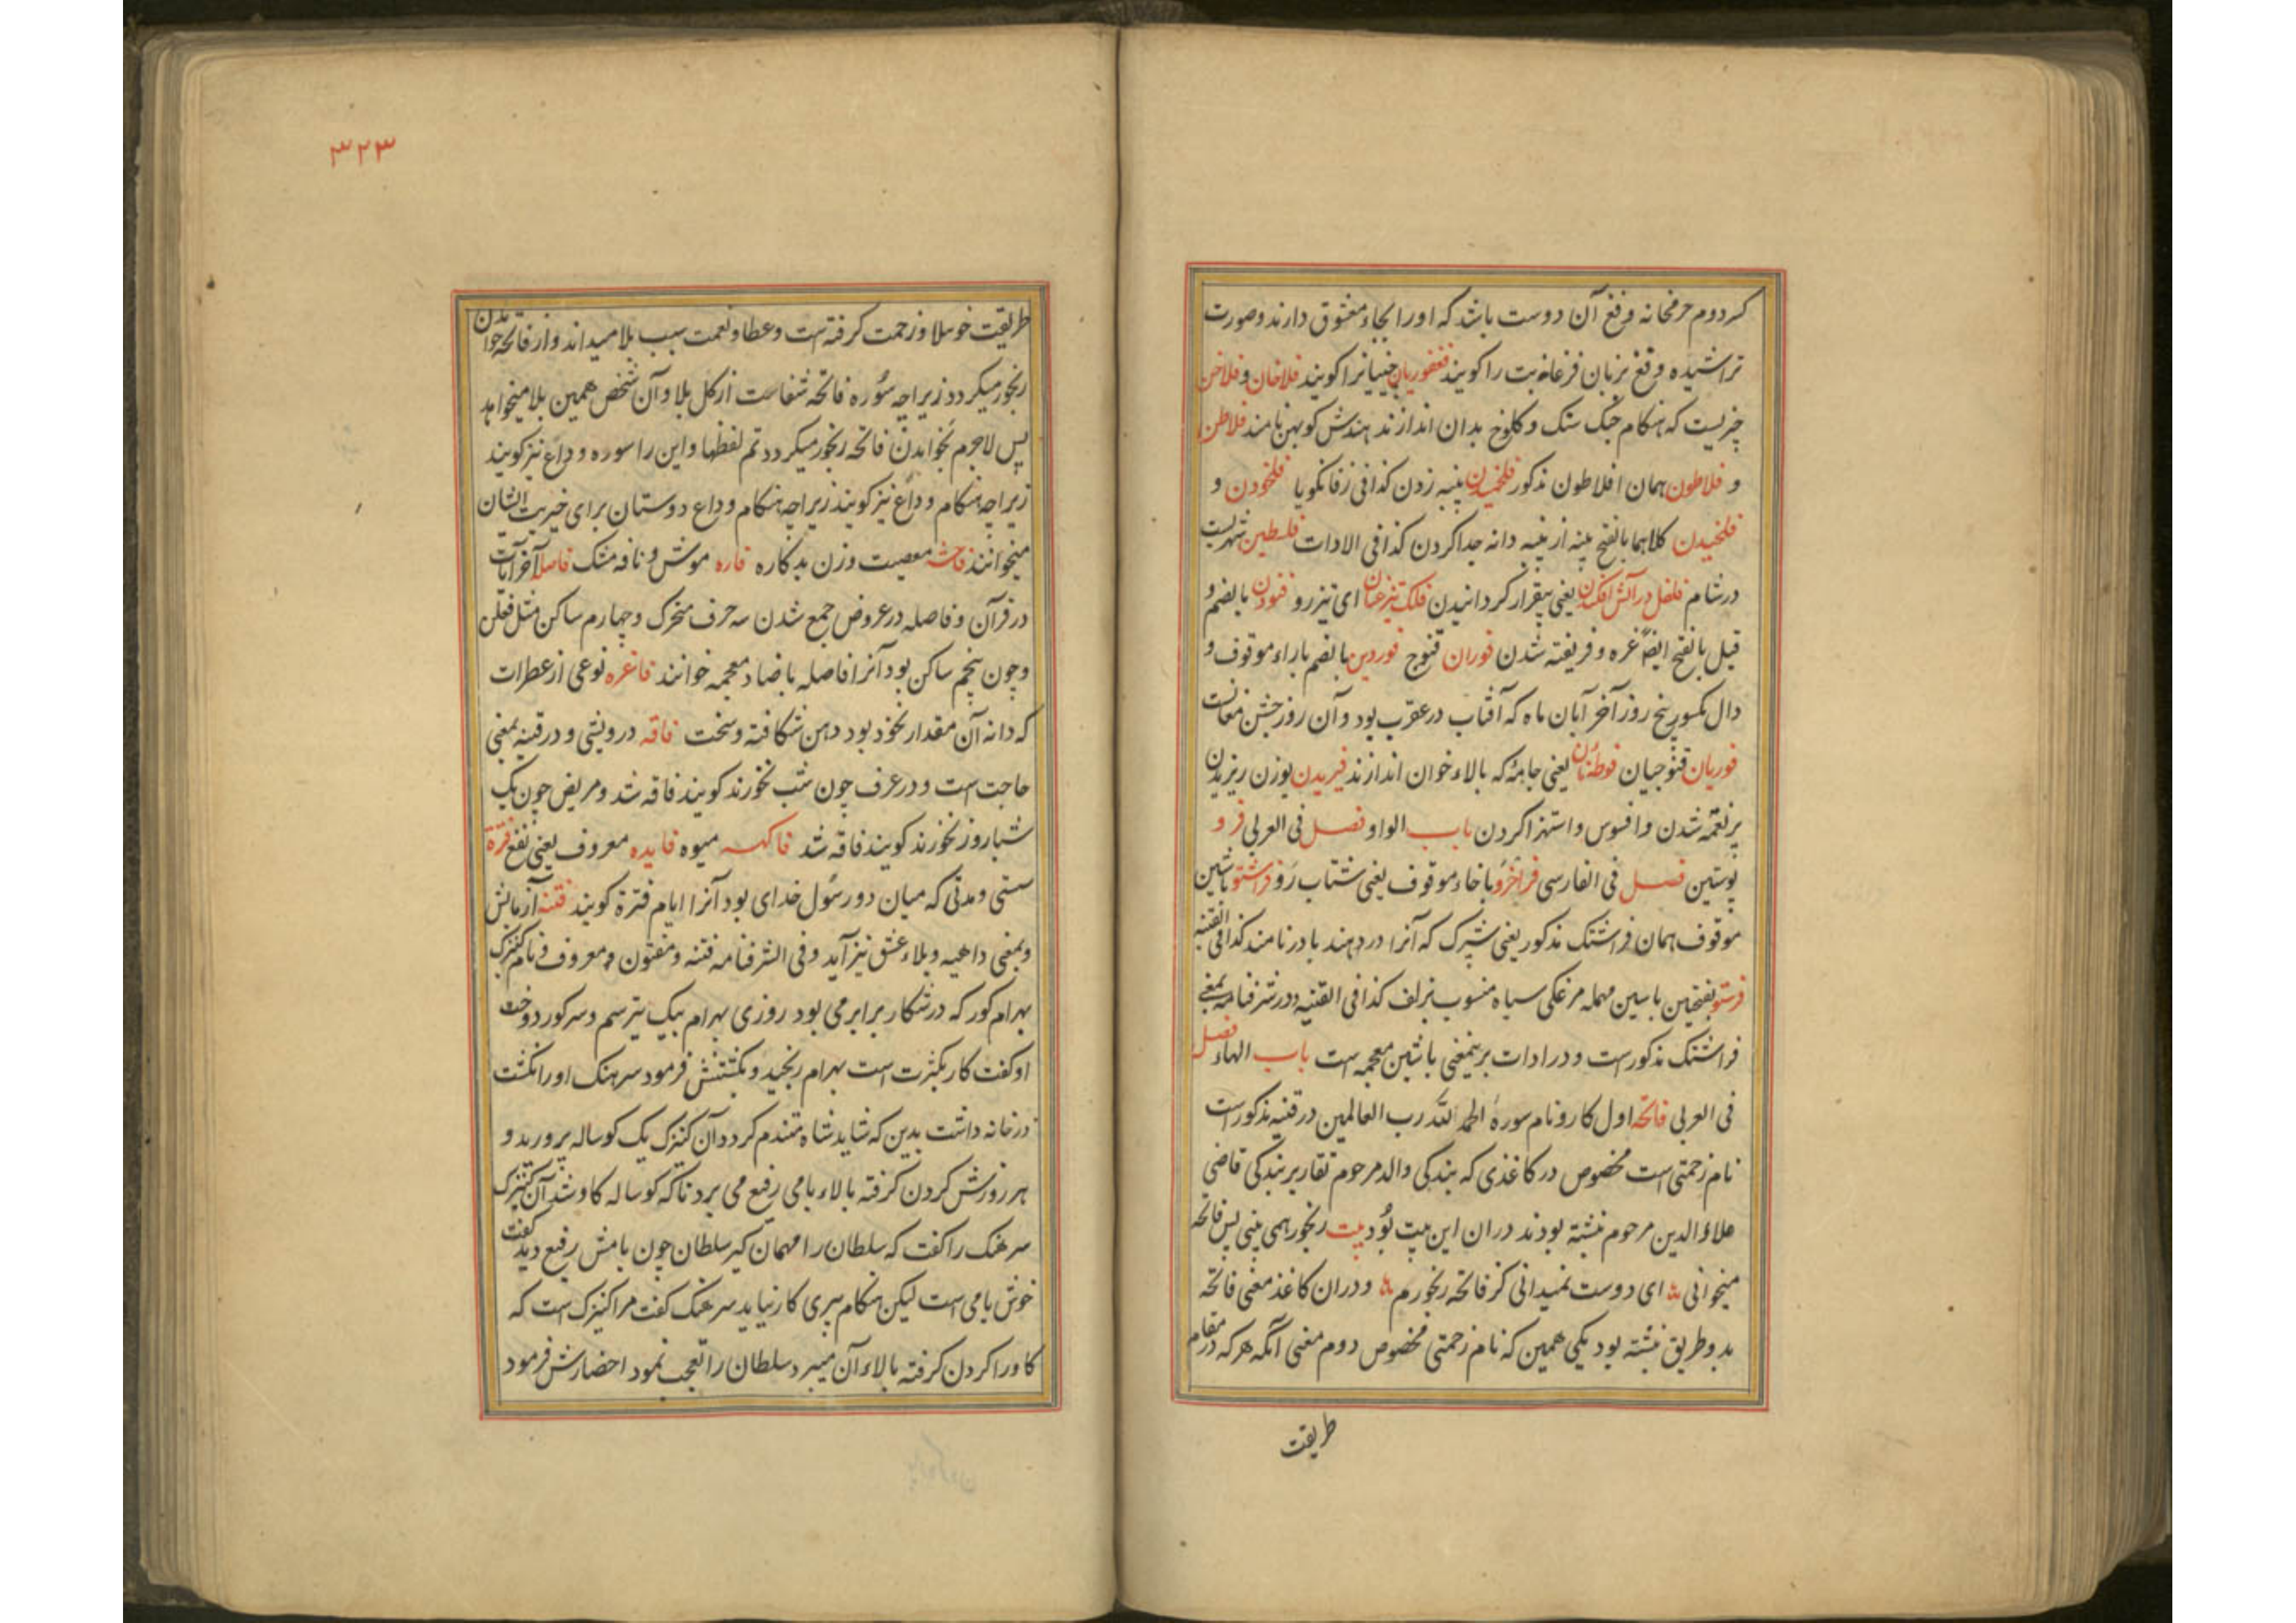 کردوم حرمخانه و فغ آن دوست باشد که او را بجاء معشوق دارند و صورت
تراشیده و فغ بزبان فرغانه بت را گویند فغفوریان چنیانرا گویند فلاخان و فلاخن
چیزیست که هنگام جنگ سنگ و کلوخ بدان اندازند هندش گوبهن نامند فلاطن
و فلاطون همان افلاطون مذکور فلخمیدن پنبه زدن کذا فی زفانگویا فلخودن و
فلخیدن کلاهما بالفتح پنبه از پنبه دانه جدا کردن کذا فی الادات فلسطین شهریست
در شام فلفل در آتش افکندن یعنی بیقرار گردانیدن فلک تیزعنان ای تیزرو فنودن بالضم و
قیل بالفتح ایضا غره و فریفته شدن فوران قنوج فوردین بالضم باراء موقوف و
دال مکسور پنج روز آخر آبان ماه که آفتاب در عقرب بود و آن روز جشن مغانست
فوریان قنوجیان فوطه‌نان یعنی جامه که بالاء خوان اندازند فیریدن بوزن ریزیدن
پرنغمه شدن و افسوس و استهزا کردن باب الواو فصل فی العربی فرو
پوستین فصل فی الفارسی فراخرو باخاء موقوف یعنی شتاب رو فراشتو باشین
موقوف همان فراشتک مذکور یعنی شپرک که آنرا در دهند بادر نامند کذا فی القنیه
فرستو بفتحتین باسین مهمله مرغکی سیاه منسوب بزلف کذا فی القنیه و در شرفنامه بمعنی
فراشتک مذکورست و در ادات برینمعنی باشین معجمه است باب الهاء فصل
فی العربی فاتحه اول کار و نام سورهٔ الحمد لله رب العالمین در قنیه مذکورست
نام زحمتی است مخصوص در کاغذی که بندگی والد مرحوم تقاریر بندگی قاضی
علاء الدین مرحوم نبشته بودند دران این بیت بود بیت رنجور همی بینی پس فاتحه
میخوانی ای دوست نمیدانی کز فاتحه رنجورم ودران کاغذ معنی فاتحه
بدو طریق نبشته بود یکی همین که نام زحمتی مخصوص دوم معنی آنکه هرکه در مقام
طریقت
۳۲۳
طریقت خو بلا و زحمت گرفته است و عطا و نعمت سبب بلا میداند و از فاتحه خواندن
رنجور میگردد زیراچه سوره فاتحه شفاست از کل بلا و آن شخص همین بلا میخواهد
پس لاجرم بخواندن فاتحه رنجور میگردد تم لفظها و این را سوره وداع نیز گویند
زیراچه هنگام وداع نیز گویند زیراچه هنگام وداع دوستان برای خیریت ایشان
میخوانند فاحشه معصیت و زن بدکاره فاره موش و نافه مشک فاصله آخر آیات
در قرآن و فاصله در عروض جمع شدن سه حرف متحرک و چهارم ساکن مثل فعلن
و چون پنجم ساکن بود آنرا فاضله باضاد معجمه خوانند فاغره نوعی از عطرات
که دانه آن مقدار نخود بود دهن شکافته و سخت فاقه درویشی و در قنیه بمعنی
حاجت است و در عرف چون شب نخورند گویند فاقه شد و مریض چون یک
شباروز نخورند گویند فاقه شد فاکهه میوه فایده معروف یعنی نفع فترة
سستی و مدتی که میان دو رسول خدای بود آنرا ایام فترة گویند فتنه آزمایش
و بمعنی داهیه و بلاء عشق نیز آید و فی الشرفنامه فتنه و مفتون و معروف و نام کنیزک
بهرام گور که در شکار برابر می بود روزی بهرام بیک تیر سم و سر گور دوخت
او گفت کار بکثرت است بهرام رنجید و بکشتنش فرمود سرهنگ او را نکشت
در خانه داشت بدین که شاید شاه متندم گردد آن کنیزک یک گوساله پرورید و
هر روزش گردن گرفته بالاء بامی رفیع می برد تا که گوساله گاو شد آن کنیزک
سرهنگ را گفت که سلطان را مهمان گیر سلطان چون بامش رفیع دید گفت
خوش بامی است لیکن هنگام پیری کار نیاید سرهنگ گفت مرا کنیزک است که
گاو را گردن گرفته بالاء آن میبرد سلطان را تعجب نمود احضارش فرمود